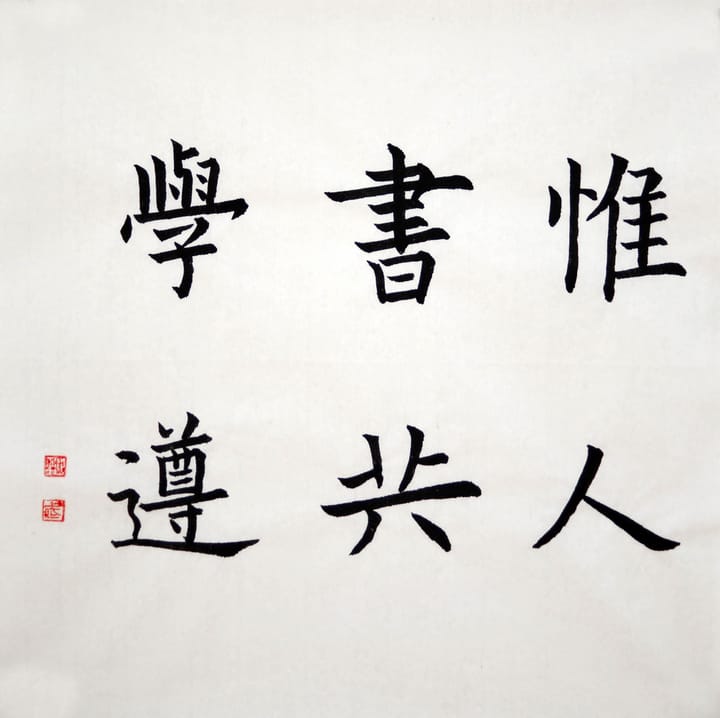 惟人
書共
學遵